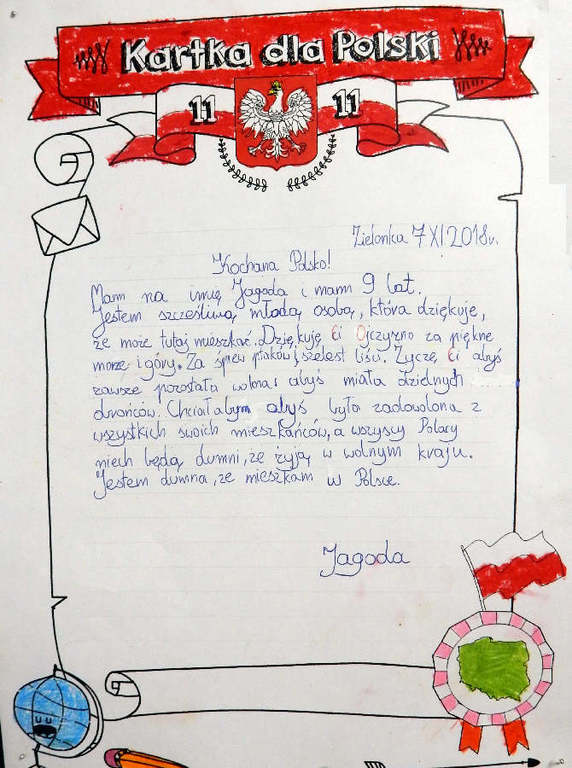 Kartka dla Polski
11 11
Zielonka 7 XI 2018r.
Kochana Polsko!
Mam na imię Jagoda i mam 9 lat.
Jestem szczęśliwą młodą osobą, która dziękuje,
że może tutaj mieszkać. Dziękuję Ci Ojczyzno za piękne
morze i góry. Za śpiew ptaków i szelest liści. Życzę Ci abyś
zawsze pozostała wolna i abyś miała dzielnych
obrońców. Chciałabym abyś była zadowolona z
wszystkich swoich mieszkańców, a wszyscy Polacy
niech będą dumni, że żyją w wolnym kraju.
Jestem dumna, że mieszkam w Polsce.
Jagoda